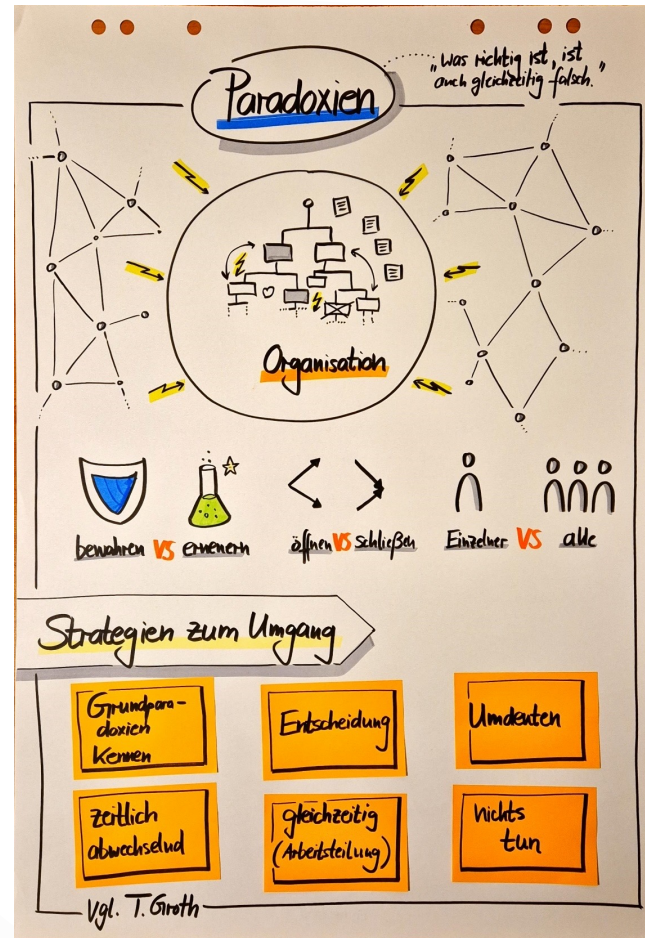 Paradoxien
"Was richtig ist, ist
auch gleichzeitig falsch."
Organisation
bewahren VS erneuern
öffnen VS schließen
Einzelner VS alle
Strategien zum Umgang
Grundpara-
doxien
kennen
Entscheidung
Umdeuten
zeitlich
abwechselnd
gleichzeitig
(Arbeitsteilung)
nichts
tun
Vgl. T. Groth